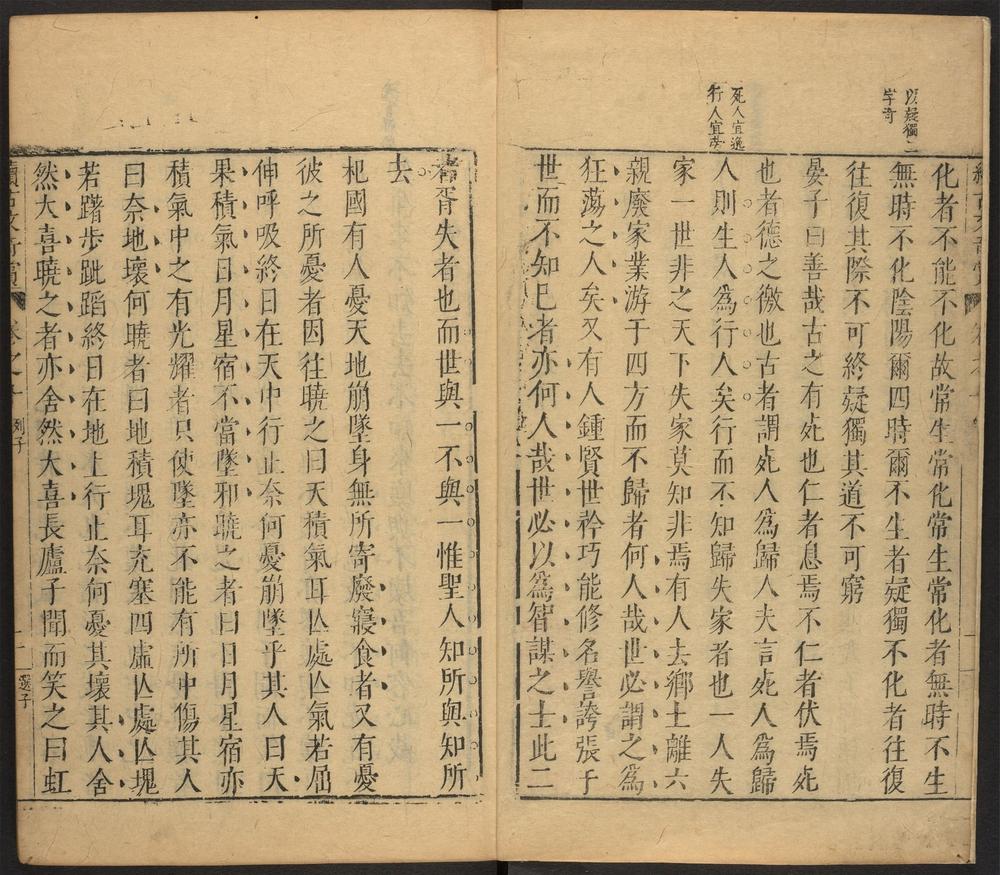 以疑獨二
字奇
死人宜逸
行人宜勞
化者不能不化故常生常化常生常化者無時不生
無時不化陰陽爾四時爾不生者疑獨不化者往復
往復其際不可終疑獨其道不可窮
晏子曰善哉古之有死也仁者息焉不仁者伏焉死
也者德之徼也古者謂死人爲歸人夫言死人爲歸
人則生人爲行人矣行而不知歸失家者也一人失
家一世非之天下失家莫知非焉有人去鄉土離六
親廢家業游于四方而不歸者何人哉世必謂之爲
狂蕩之人矣又有人鍾賢世矜巧能修名譽誇張于
世而不知已者亦何人哉世必以爲智謀之士此二
者胥失者也而世與一不與一惟聖人知所與知所
去
杞國有人憂天地崩墜身無所寄廢寢食者又有憂
彼之所憂者因往曉之曰天積氣耳亾處亾氣若屈
伸呼吸終日在天中行止奈何憂崩墜乎其人曰天
果積氣日月星宿不當墜邪曉之者曰日月星宿亦
積氣中之有光耀者只使墜亦不能有所中傷其人
曰奈地壞何曉者曰地積塊耳充塞四虛亾處亾塊
若躇步跐蹈終日在地上行止奈何憂其壞其人舍
然大喜曉之者亦舍然大喜長廬子聞而笑之曰虹
續古文奇賞 卷之 列子 選子